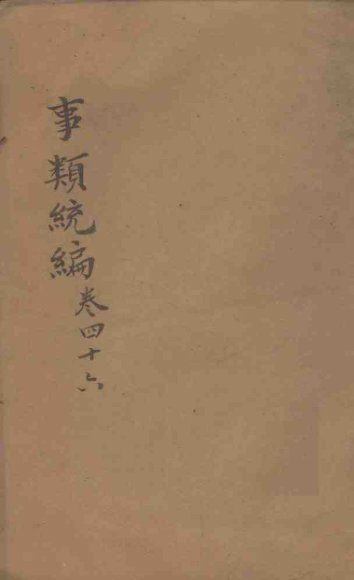 事類統編卷四十六